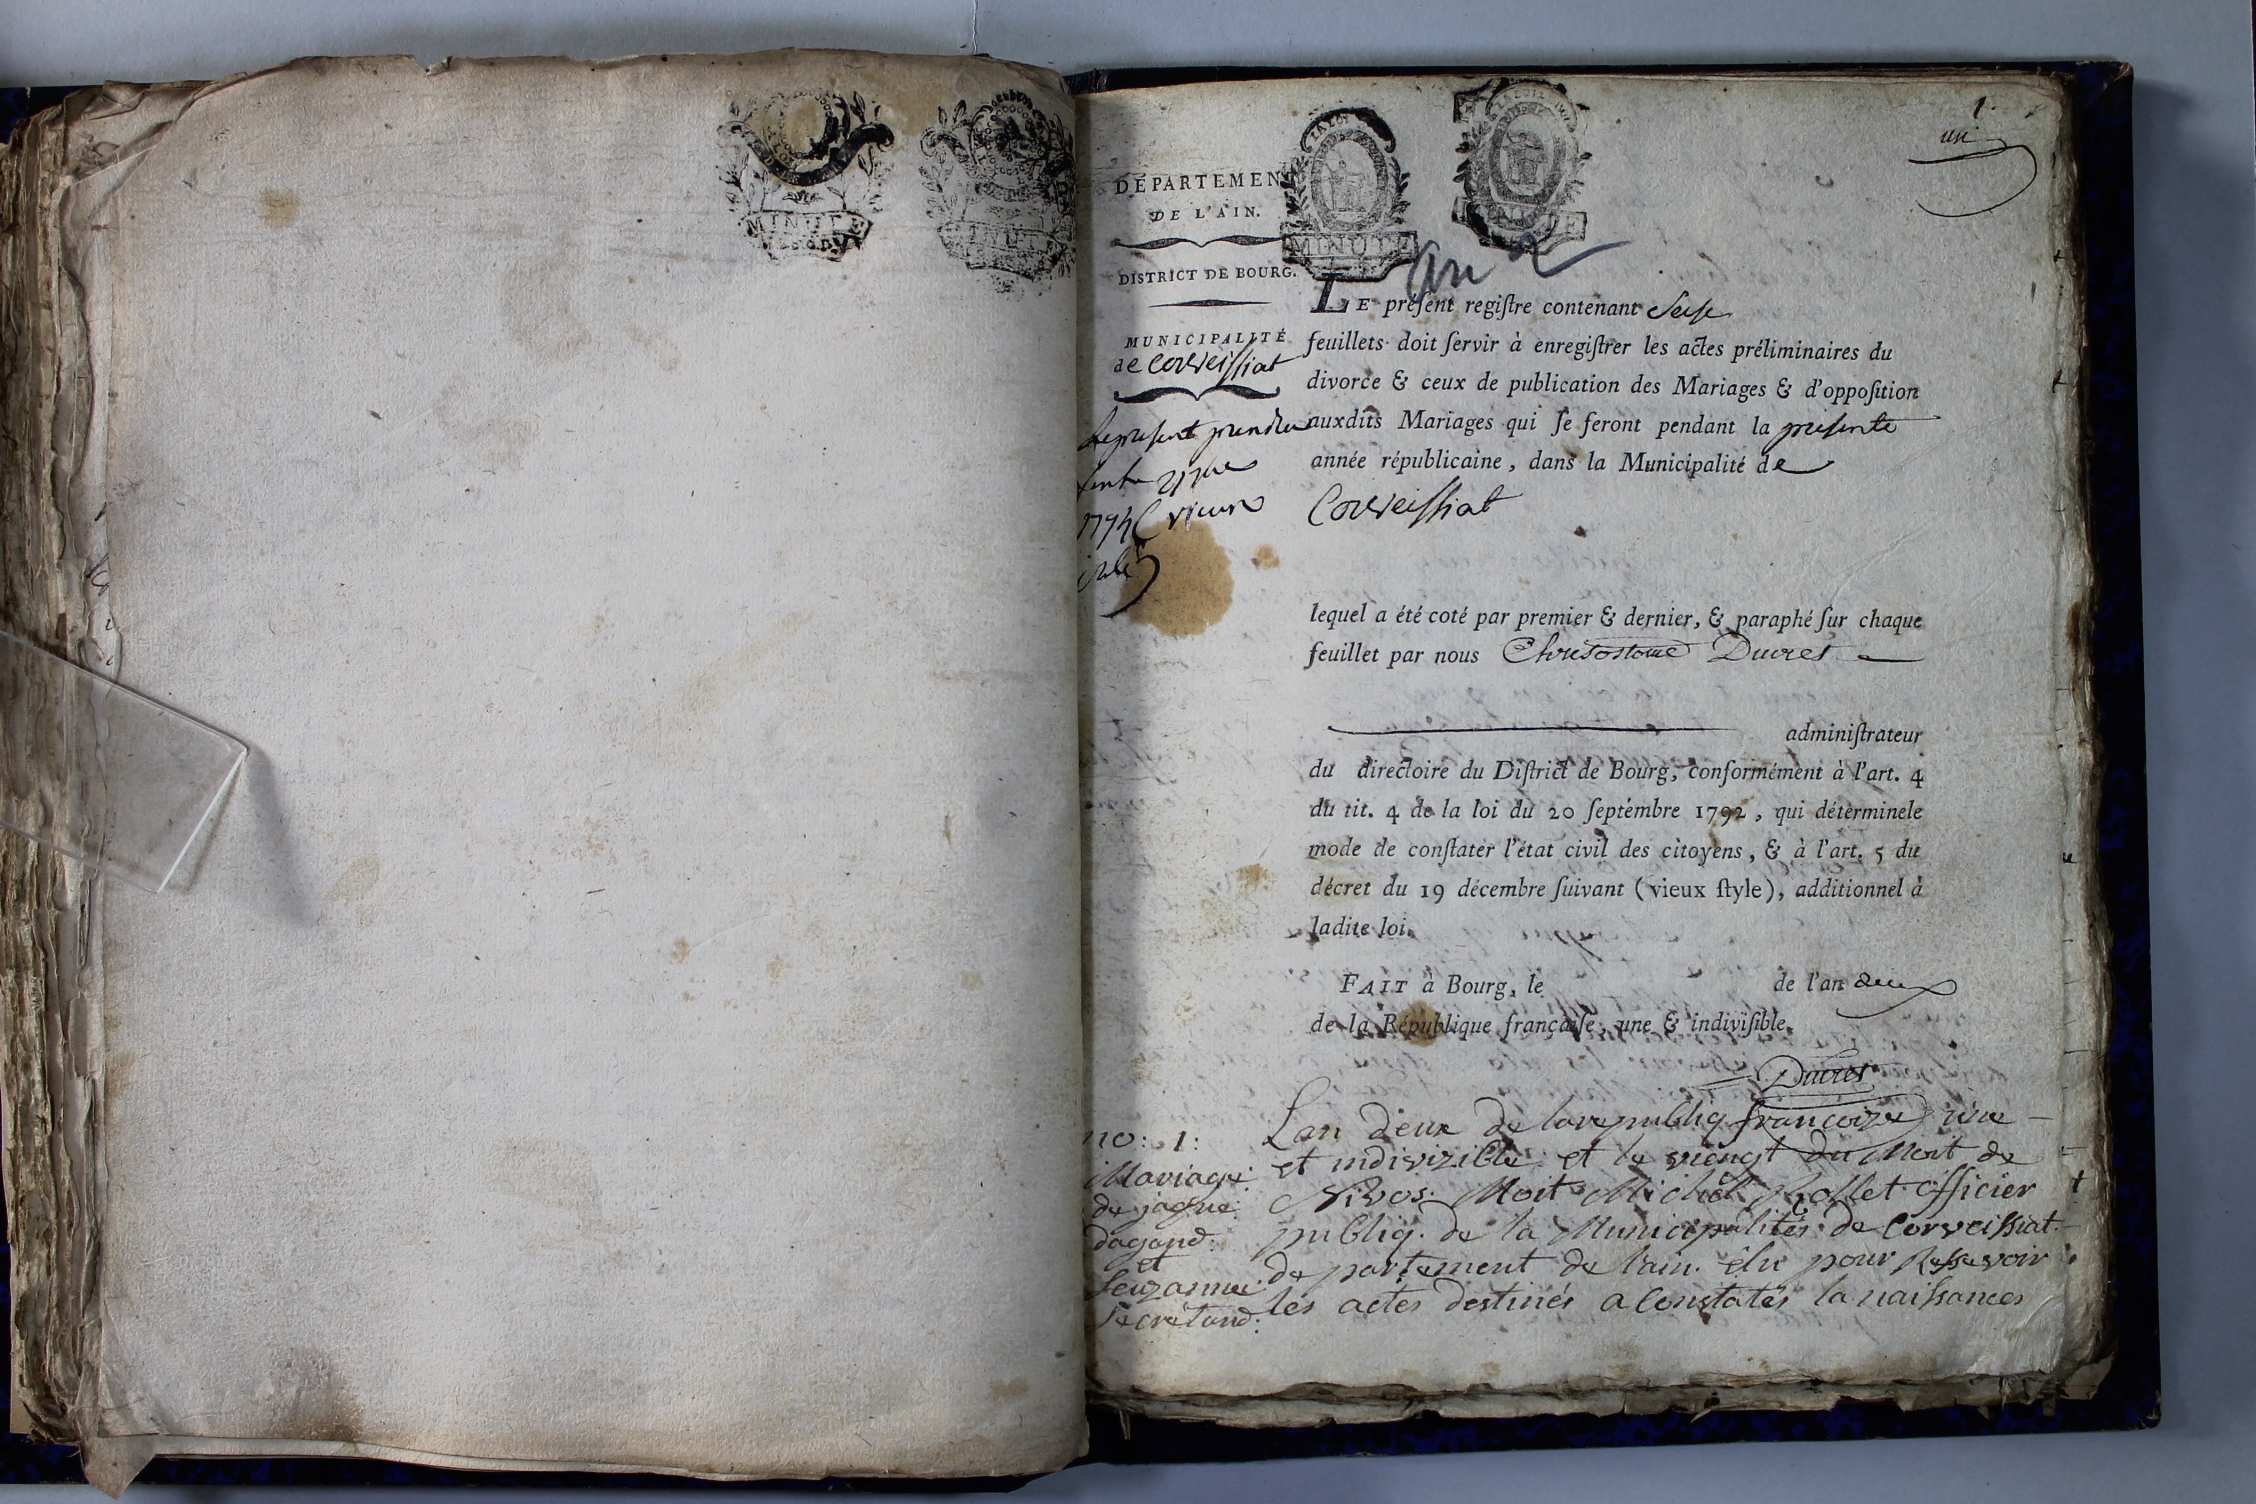 MINUTE
MINUTE
1.
un
DÉPARTEMENT
DE L'AIN.
DISTRICT DE BOURG.
MUNICIPALITÉ
de Corveissiat
MINUTE
MINUTE
an 2
LE préſent regiſtre contenant Seise
feuillets doit ſervir à enregiſtrer les actes préliminaires du
divorce & ceux de publication des Mariages & d'oppoſition
auxdits Mariages qui ſe feront pendant la presente
année républicaine, dans la Municipalité de
Corveissiat
lequel a été coté par premier & dernier, & paraphé ſur chaque
feuillet par nous Chrisostome Ducret
adminiſtrateur
du directoire du Diſtrict de Bourg, conformément à l'art. 4
du tit. 4 de la loi du 20 ſeptembre 1792, qui déterminele
mode de conſtater l'état civil des citoyens, & à l'art. 5 du
décret du 19 décembre ſuivant (vieux ſtyle), additionnel à
ladite loi.
FAIT à Bourg, le de l'an deux
de la République françaiſe, une & indiviſible.
Ducret
no: 1:
Mariage
de jaque
dagand
et
Seuzanne
Secretand:
Lan deux de la republiq francoize une
et indivizible et le viengt du Moit de
Nivos. Moit Michel Rollet officier
publiq. de la Municipalités de Corveissiat
departement de lain. élu pour Ressevoir
les actes destinés a Constatés la naissances